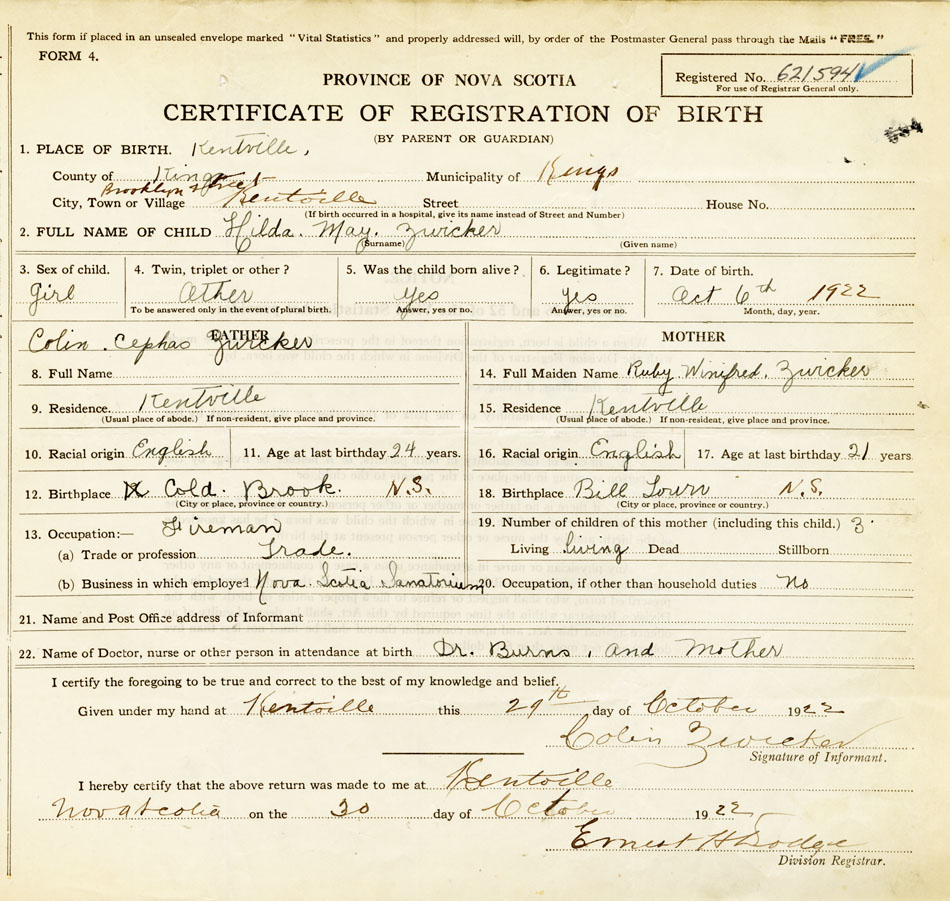 This form if placed in an unsealed envelope marked "Vital Statistics" and properly addressed will, by order of the Postmaster General pass through the Mails "FREE."
FORM 4.
PROVINCE OF NOVA SCOTIA
Registered No. 621594
For use of Registrar General only.
CERTIFICATE OF REGISTRATION OF BIRTH
(BY PARENT OR GUARDIAN)
1. PLACE OF BIRTH. Kentville,
County of Kings Municipality of Kings
Brooklyn Street
City, Town or Village Kentville Street House No.
(If birth occurred in a hospital, give its name instead of Street and Number)
2. FULL NAME OF CHILD Hilda. May. Zwicker
(Surname) (Given name)
3. Sex of child. 4. Twin, triplet or other? 5. Was the child born alive? 6. Legitimate? 7. Date of birth.
Girl Other yes yes Oct 6th 1922
To be answered only in the event of plural birth. Answer, yes or no. Answer, yes or no. Month, day, year.
FATHER MOTHER
Colin. Cephas Zwicker
8. Full Name 14. Full Maiden Name Ruby Winifred. Zwicker
9. Residence. Kentville 15. Residence Kentville
(Usual place of abode.) If non-resident, give place and province. (Usual place of abode.) If non-resident, give place and province.
10. Racial origin English 11. Age at last birthday 24 years. 16. Racial origin English 17. Age at last birthday 21 years
12. Birthplace Cold. Brook. N.S. 18. Birthplace Bill Town N.S.
(City or place, province or country.) (City or place, province or country.)
13. Occupation:— Fireman 19. Number of children of this mother (including this child.) 3
(a) Trade or profession Trade. Living living Dead Stillborn
(b) Business in which employed Nova. Scotia Sanatorium 20. Occupation, if other than household duties No
21. Name and Post Office address of Informant
22. Name of Doctor, nurse or other person in attendance at birth Dr. Burns, and Mother
I certify the foregoing to be true and correct to the best of my knowledge and belief.
Given under my hand at Kentville this 29th day of October 1922
Colin Zwicker
Signature of Informant.
I hereby certify that the above return was made to me at Kentville
Nova Scotia on the 30 day of October 1922
Ernest H Dodge
Division Registrar.